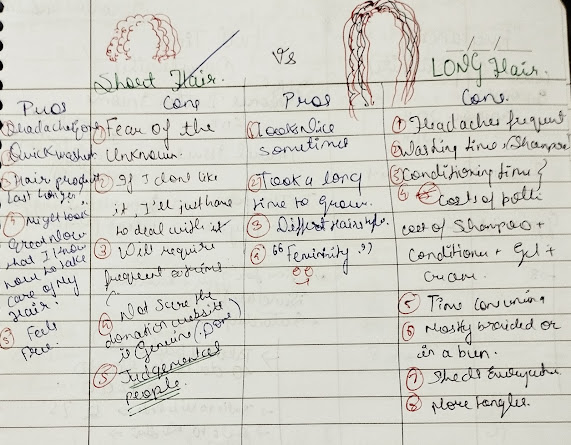 Vs
__/__/__
Short Hair.
LONG Hair.
Pros
① Headache gone
② Quick washes
③ Hair products
last longer
④ Might look
Great now
that I know
how to take
care of my
Hair.
⑤ Feel
free.
Cons
① Fear of the
Unknown.
② If I dont like
it, I'll just have
to deal with it
③ Will require
frequent
④ Not Sure the
donation website
is Genuine. (Done)
⑤ Judgemental
People
Pros
① Looks Nice
sometimes
② Took a long
time to Grow.
③ Diffent Hairstyles
④ "Feminity."
Cons.
① Headaches frequent
② Washing time (Shampoo
③ Conditioning time
④ Costs of
cost of Shampoo +
conditioner + Gel +
cream.
⑤ Time consuming
⑥ Mostly braided or
in a bun.
⑦ Sheds Everywhere
⑧ More tangles.